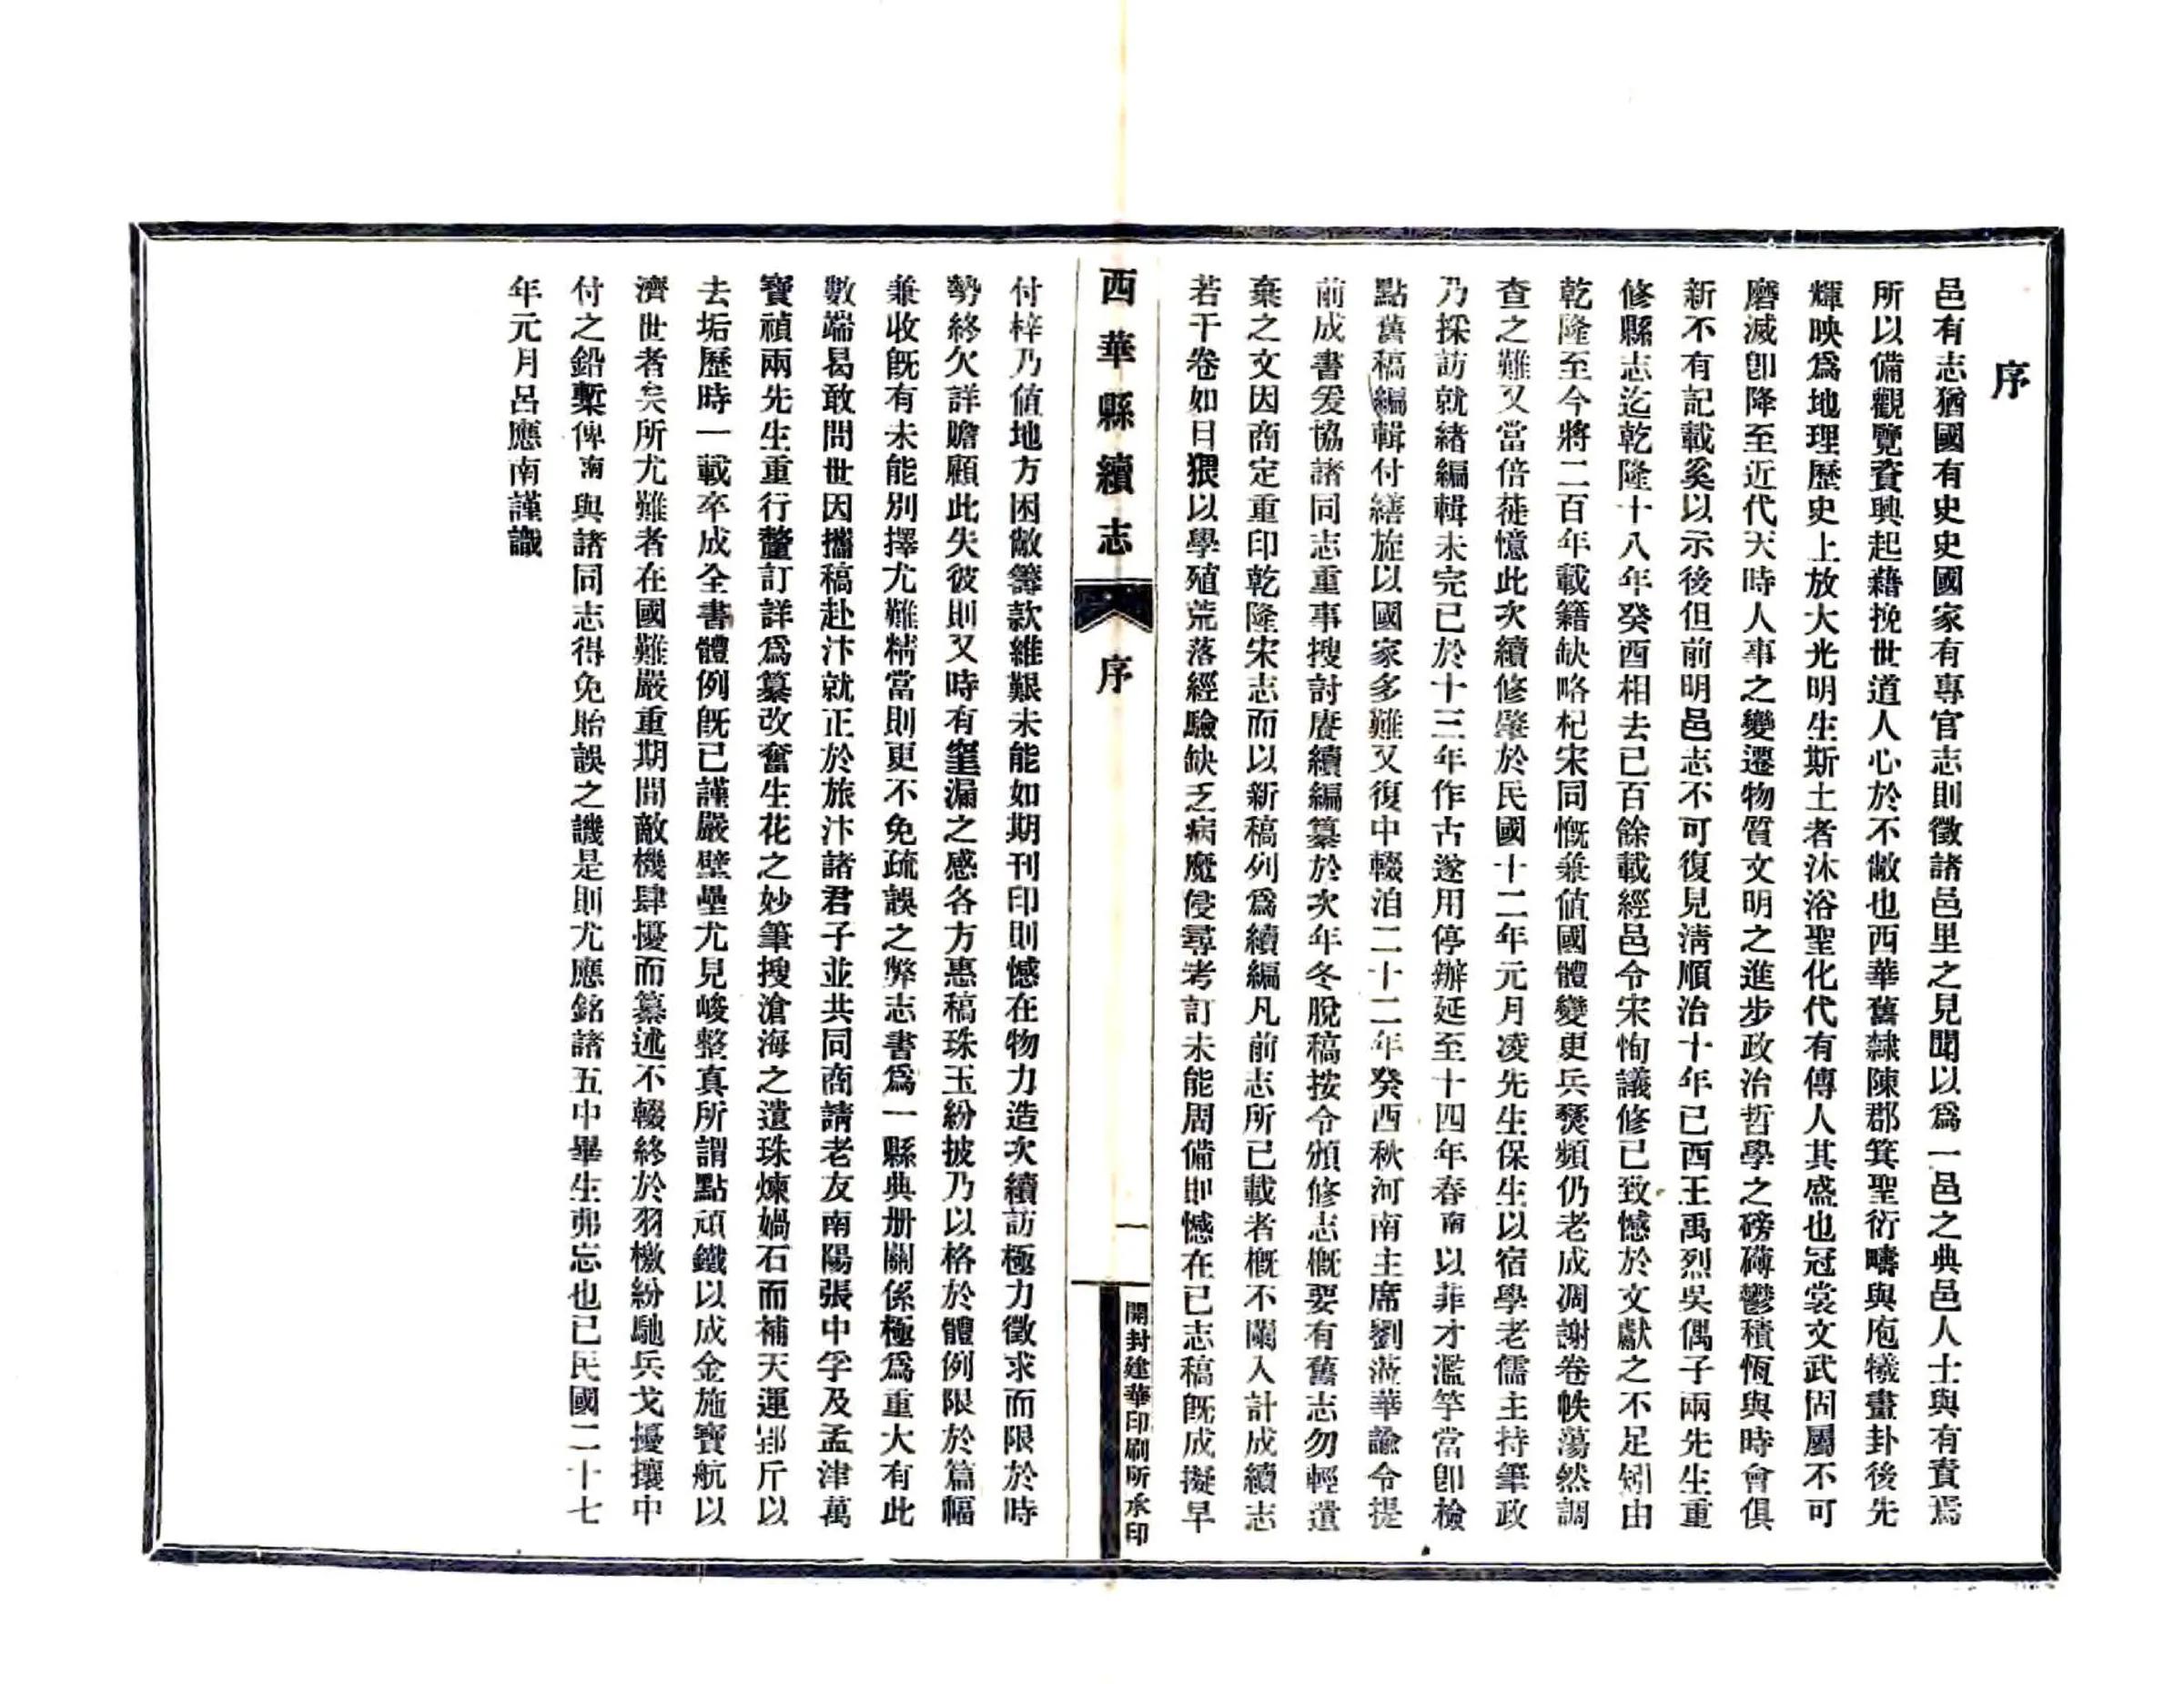 序
邑有志猶國有史史國家有專官志則徵諸邑里之見聞以爲一邑之典邑人士與有責焉
所以備觀覽資興起藉挽世道人心於不敝也西華舊隸陳郡箕聖衍疇與庖犧畫卦後先
輝映爲地理歷史上放大光明生斯土者沐浴聖化代有傳人其盛也冠裳文武固屬不可
磨滅卽降至近代天時人事之變遷物質文明之進步政治哲學之磅礴鬱積恆與時會俱
新不有記載奚以示後但前明邑志不可復見淸順治十年已酉王禹烈吳偶子兩先生重
修縣志迄乾隆十八年癸酉相去已百餘載經邑令宋恂議修已致憾於文獻之不足矧由
乾隆至今將二百年載籍缺略杞宋同慨兼値國體變更兵燹頻仍老成凋謝卷帙蕩然調
查之難又當倍蓰憶此次續修肇於民國十二年元月凌先生保生以宿學老儒主持筆政
乃採訪就緒編輯未完已於十三年作古遂用停辦延至十四年春南以菲才濫竽當卽檢
點舊稿編輯付繕旋以國家多難又復中輟洎二十二年癸酉秋河南主席劉茲華諭令提
前成書爰協諸同志重事搜討賡續編纂於次年冬脫稿按令頒修志概要有舊志勿輕遺
棄之文因商定重印乾隆宋志而以新稿列爲續編凡前志所已載者概不闌入計成續志
若干卷如日猥以學殖荒落經驗缺乏病魔侵尋考訂未能周備卽憾在已志稿旣成擬早
西華縣續志
序
一
開封建華印刷所承印
付梓乃値地方困敝籌款維艱未能如期刊印則憾在物力造次續訪極力徵求而限於時
勢終欠詳贍顧此失彼則又時有罣漏之感各方惠稿珠玉紛披乃以格於體例限於篇幅
兼收旣有未能別擇尤難精當則更不免疏誤之弊志書爲一縣典册關係極爲重大有此
數端曷敢問世因攜稿赴汴就正於旅汴諸君子並共同商請老友南陽張中孚及孟津萬
寶禎兩先生重行釐訂詳爲纂改奮生花之妙筆搜滄海之遺珠煉媧石而補天運郢斤以
去垢歷時一載卒成全書體例旣已謹嚴壁壘尤見峻整真所謂點頑鐵以成金施寶航以
濟世者矣所尤難者在國難嚴重期間敵機肆擾而纂述不輟終於羽檄紛馳兵戈擾攘中
付之鉛槧俾南與諸同志得免貽誤之譏是則尤應銘諸五中畢生弗忘也已民國二十七
年元月呂應南謹識